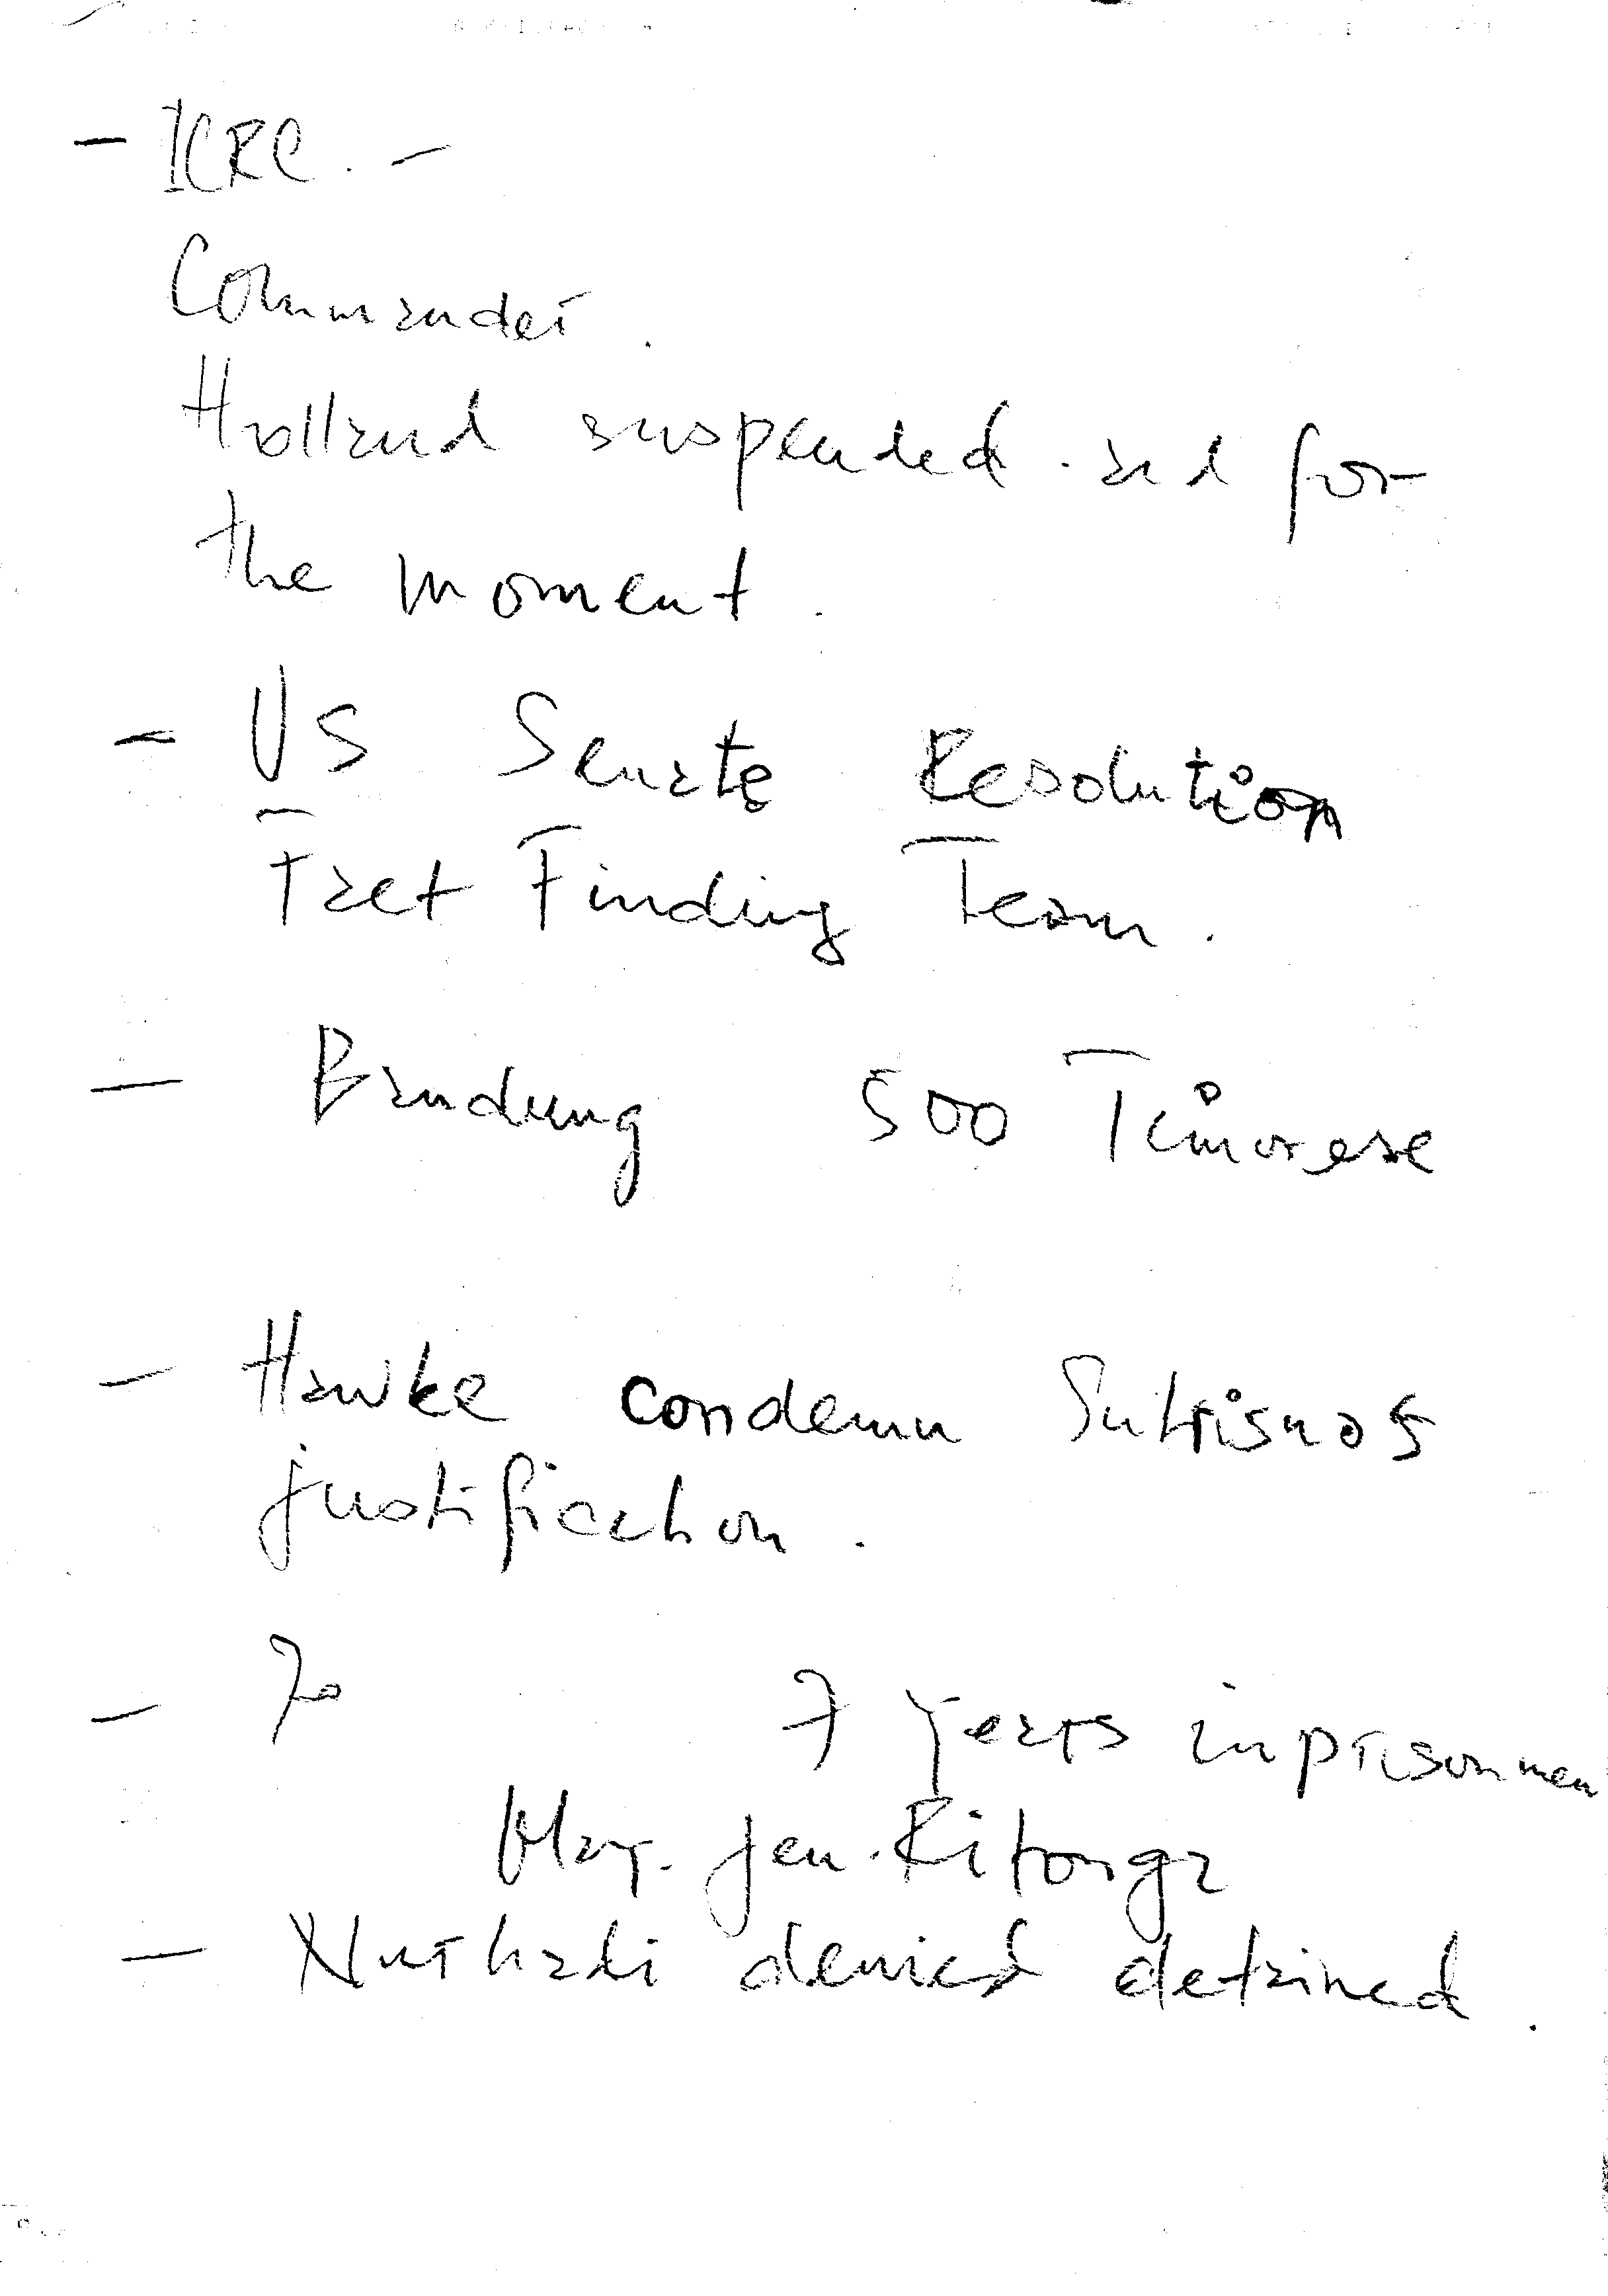 - ICRC. -
Commander.
Holland suspended aid for
the moment.
- US Senate Resolution
Fact Finding Team.
- Bandung 500 Timorese
- Hawke condemn Sutrisnos
justification.
- 70 7 years inprisonmen
May. jen. Ritonga
- Nurhadi denied detained.